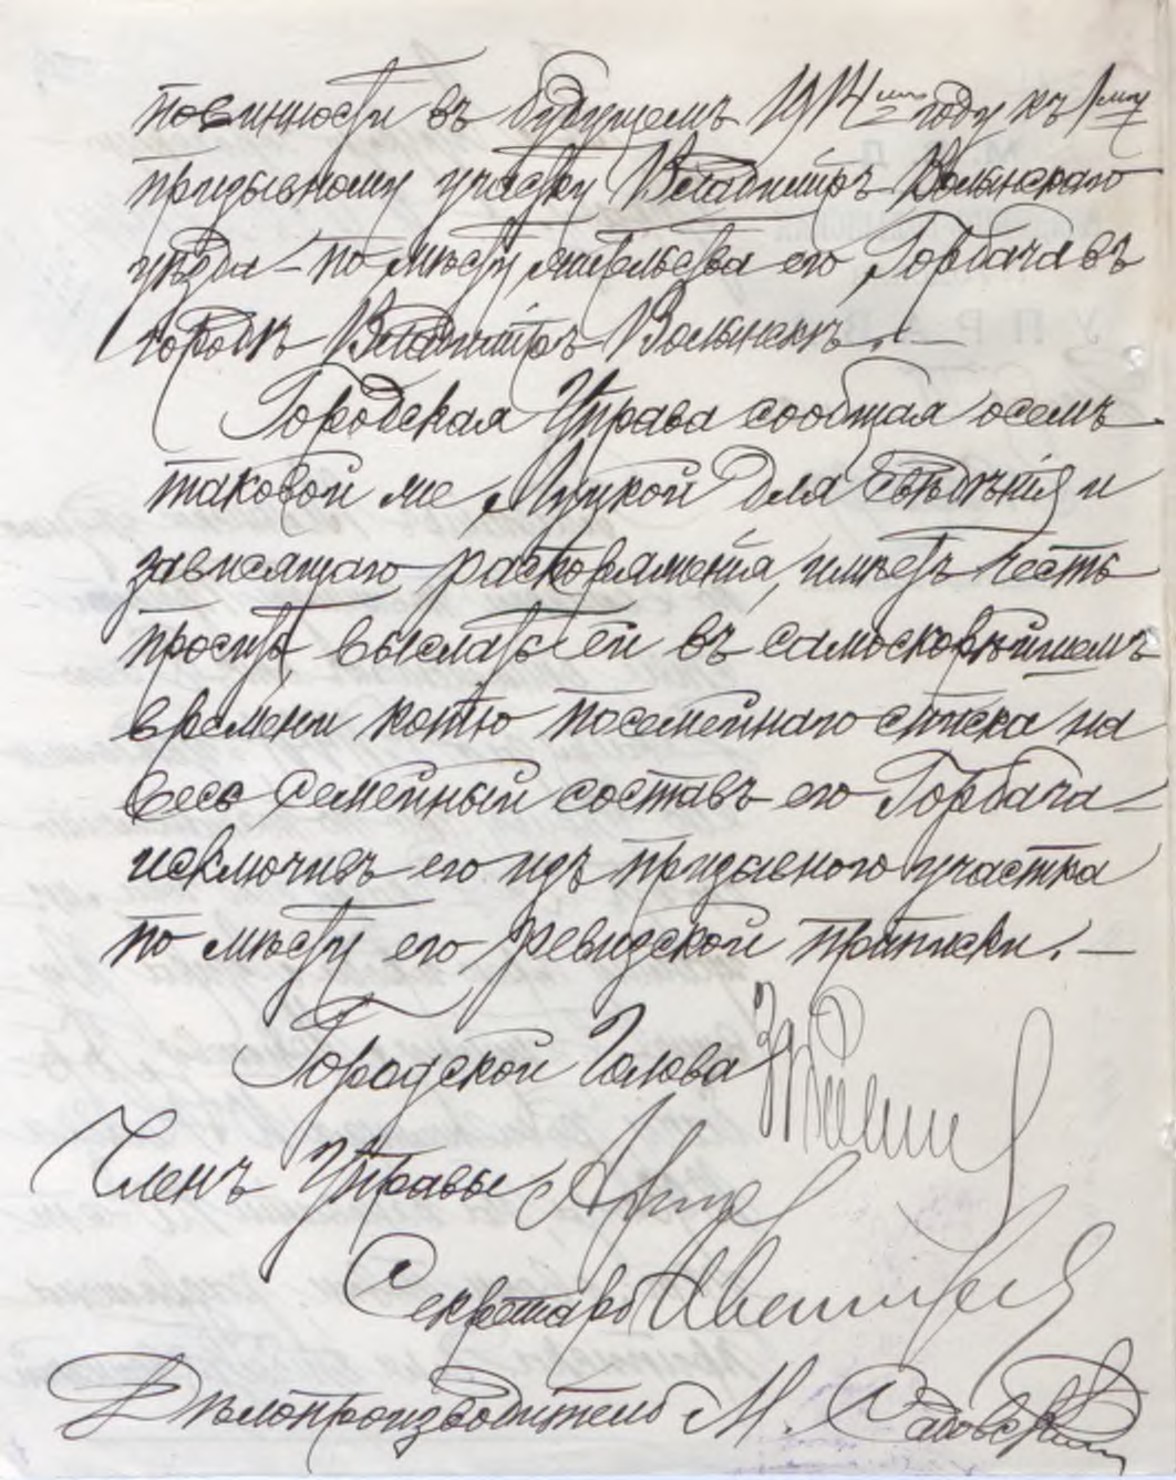 повинности въ будущемъ 1914мъ году къ 1му
призывному участку Владимiръ Волынскаго
уѣзда – по мѣсту жительства его Горбача въ
городѣ Владимiръ Волынскѣ. –
Городская Управа сообщая о семъ
таковой же Луцкой для свѣдѣнiя и
зависящаго распоряженiя, имѣетъ честь
просить выслать ей въ самоскорѣйшемъ
времени копiю посемейнаго списка на
весь семейный составъ его Горбача –
исключивъ его изъ призывного участка
по мѣсту его ревизской приписки. –
Городской Голова
Членъ Управы
Секретарь
Дѣлопроизводитель М. Садовскiй